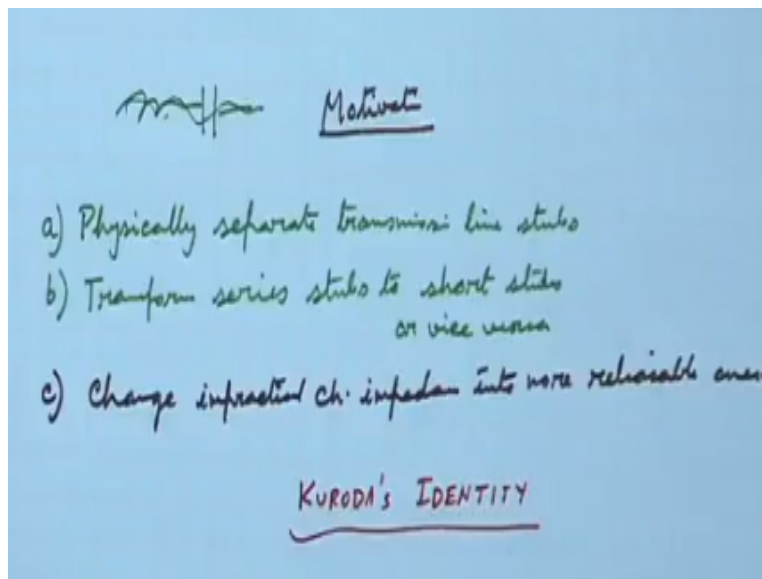 Motivati
a) Physically separate transmissi line stubs
b) Transform series stubs to short stubs
or vice versa
c) Change impractical ch. impedan into more
KURODA'S IDENTITY